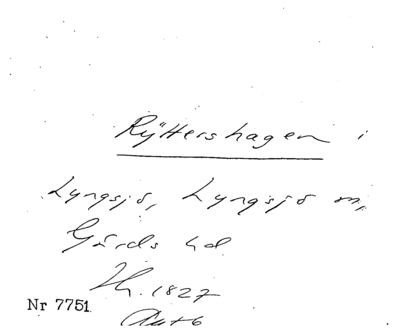 Ryttershagen i
Lyngsjö, Lyngsjö m,
Gärds hd
1827
Nr 7751